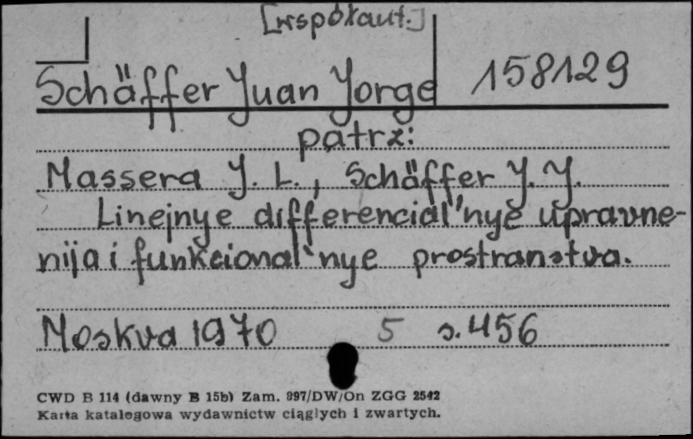 [współaut.]
Schäffer Juan Jorge 158129
patrz:
Massera J. L., Schäffer J. J.
Linejnye differencial'nye upravne-
nija i funkcional'nye prostranstva.
Moskva 1970 5 s. 456
CWD B 114 (dawny B 15b) Zam. 997/DW/On ZGG 2542
Karta katalogowa wydawnictw ciągłych i zwartych.